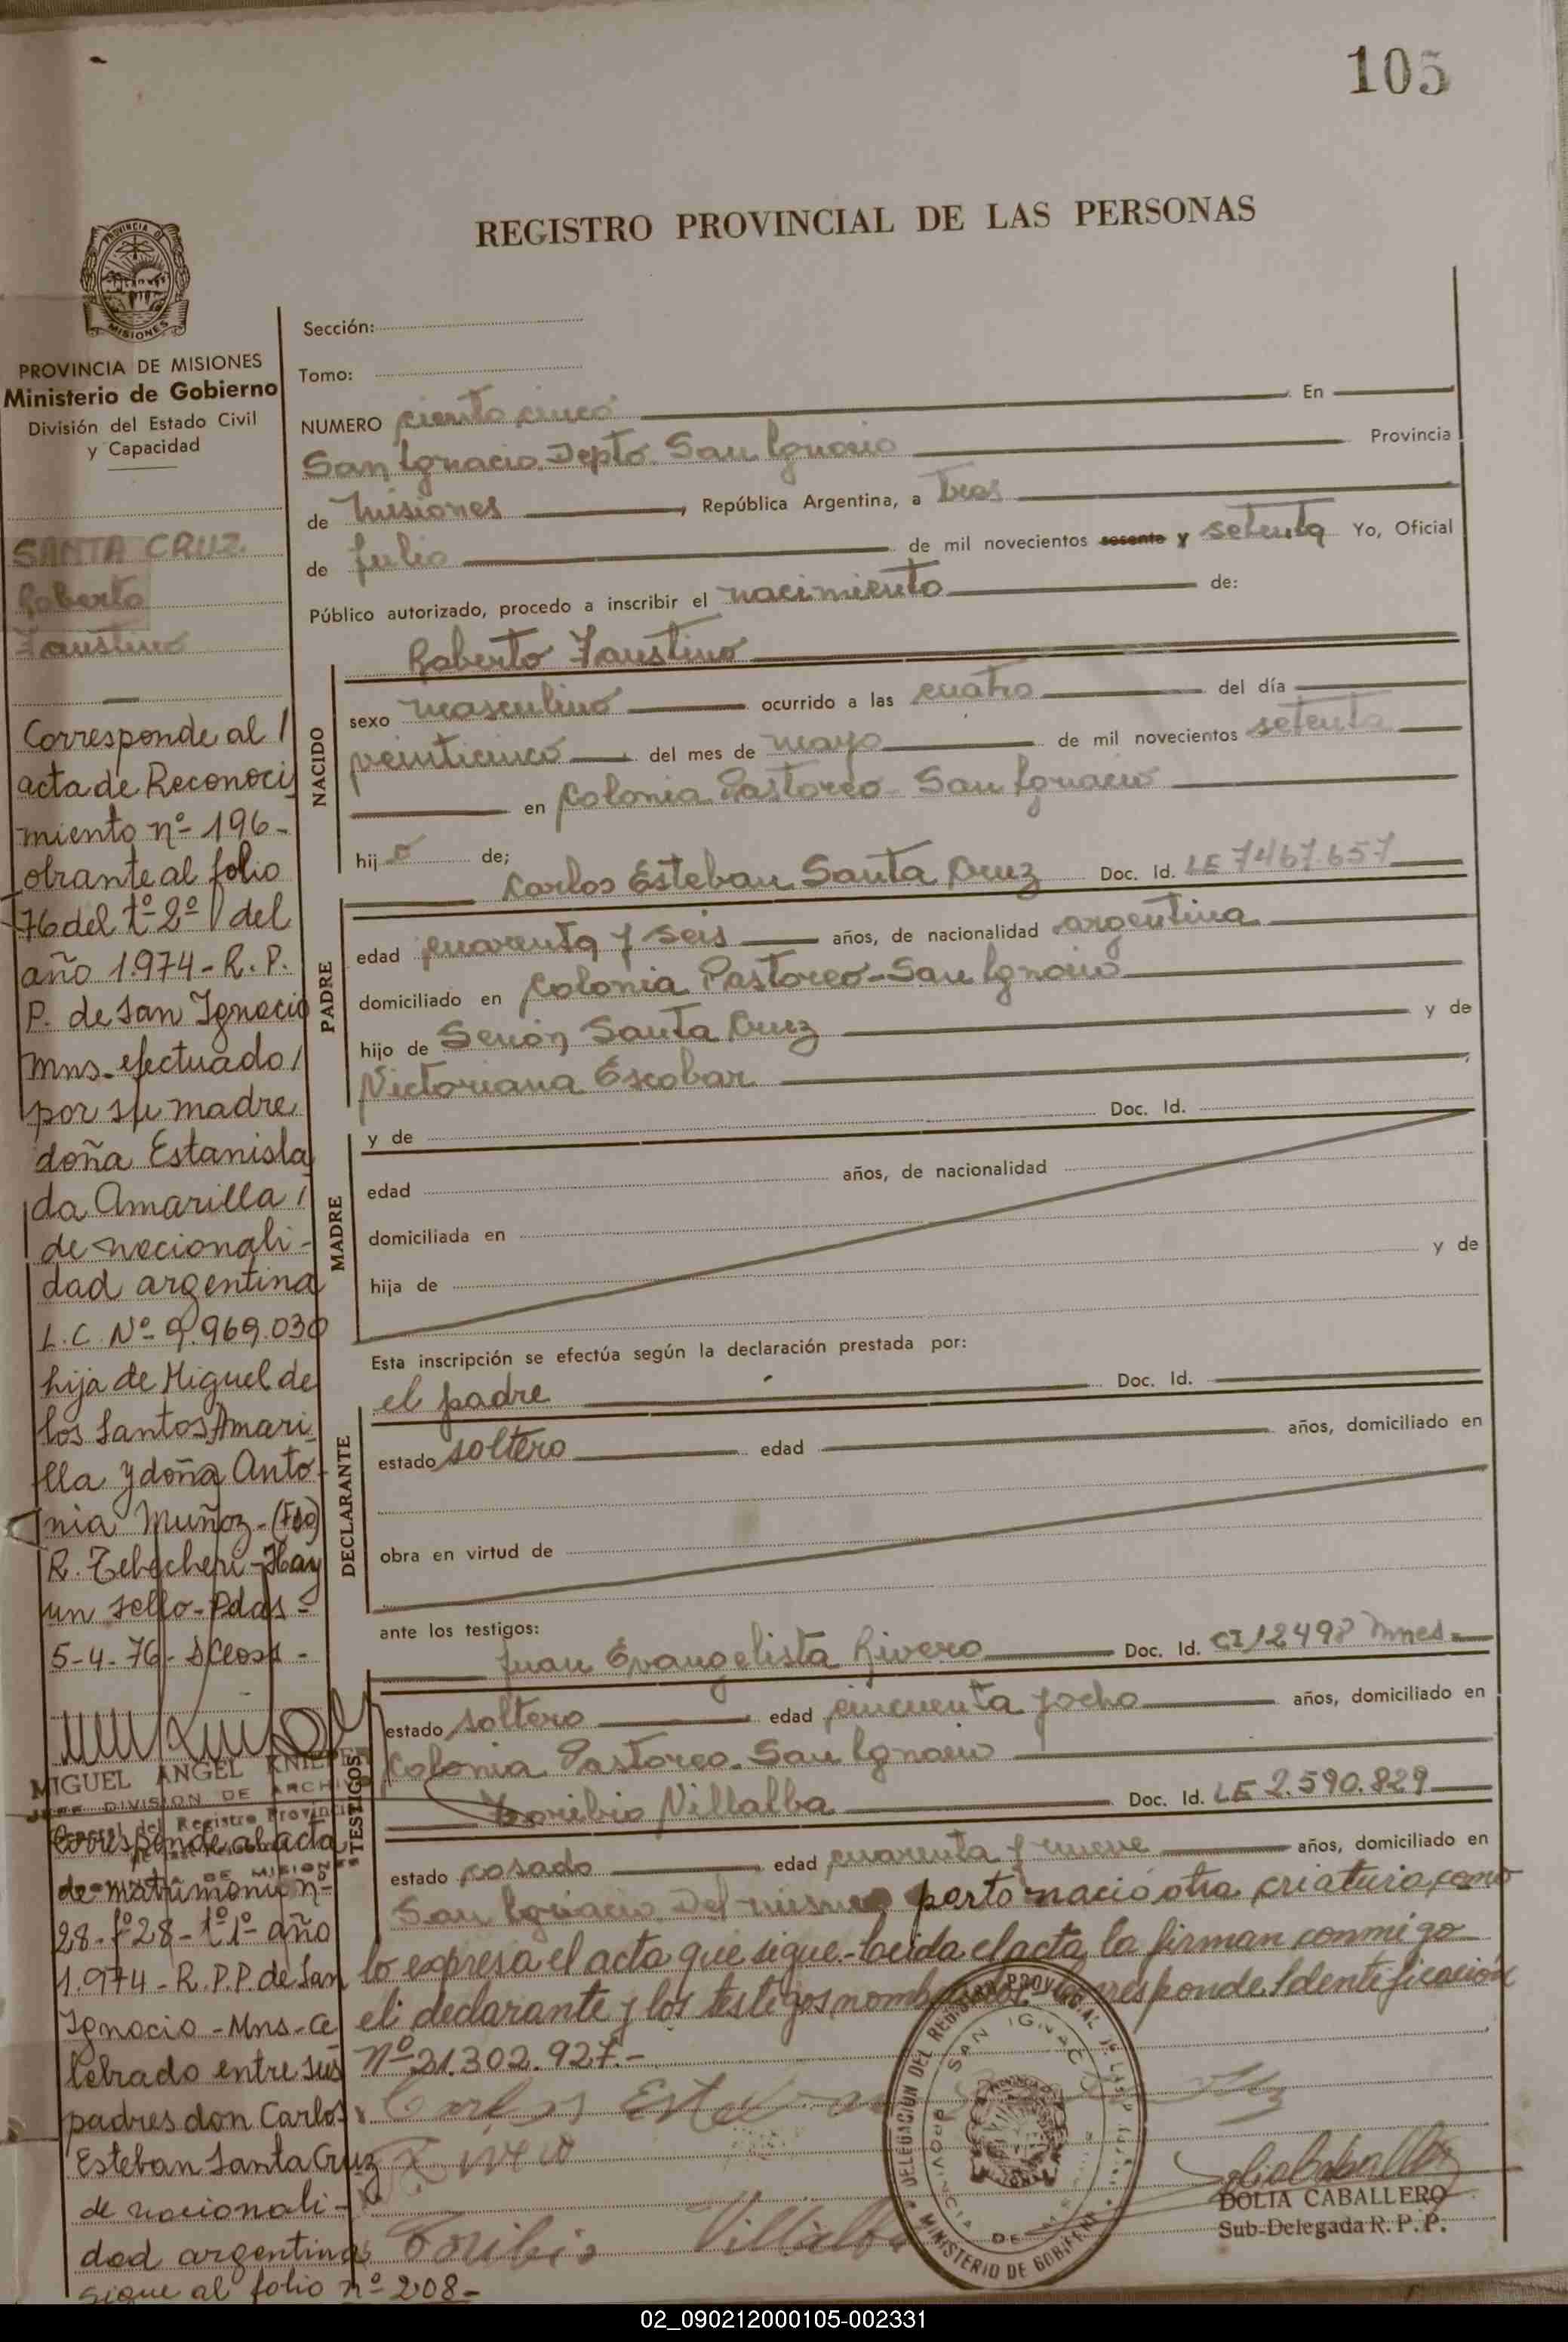 105
REGISTRO PROVINCIAL DE LAS PERSONAS
MISIONES
PROVINCIA DE MISIONES
Ministerio de Gobierno
División del Estado Civil
y Capacidad
SANTA CRUZ.
Roberto
Faustino
Corresponde al /
acta de Reconoci
miento nº 196-
obrante al folio
76 del tº 2º del
año 1.974 - R. P.
P. de San Ignacio
Mns. efectuado /
por su madre
doña Estanisla
da Amarilla /
de nacionali-
dad argentina
L.C. Nº 9.969.030
hija de Miguel de
los Santos Amari
lla y doña Anto-
nia Muñoz - (Fdo)
R. - Hay
un sello - Pdas -
5-4-76 -
MIGUEL ANGEL
JEFE DIVISION DE ARCHIVO
General del Registro Provincial
DE MISIONES
Corresponde al acta
de matrimonio nº
28 - fº 28 - tº 1º año
1.974 - R.P.P. de San
Ignacio - Mns - Ce
lebrado entre sus
padres don Carlos
Esteban Santa Cruz
de nacionali-
dad argentina
sigue al folio nº 208-
Sección:
Tomo:
NUMERO ciento cinco En
San Ignacio Depto. San Ignacio Provincia
de Misiones , República Argentina, a tres
de Julio de mil novecientos sesenta y setenta Yo, Oficial
Público autorizado, procedo a inscribir el nacimiento de:
NACIDO
Roberto Faustino
sexo masculino ocurrido a las cuatro del día
veinticinco del mes de mayo de mil novecientos setenta
en Colonia Pastoreo - San Ignacio
hij o de;
PADRE
Carlos Esteban Santa Cruz Doc. Id. LE 7467.657
edad cuarenta y seis años, de nacionalidad argentina
domiciliado en Colonia Pastoreo - San Ignacio
hijo de Santa Cruz y de
Victoriana Escobar
MADRE
y de Doc. Id.
edad años, de nacionalidad
domiciliada en
hija de y de
Esta inscripción se efectúa según la declaración prestada por:
DECLARANTE
el padre Doc. Id.
estado soltero edad años, domiciliado en
obra en virtud de
ante los testigos:
TESTIGOS
Juan Evangelista Rivero Doc. Id. CI 12498 Mnes.
estado soltero edad cincuenta y ocho años, domiciliado en
Colonia Pastoreo. San Ignacio
Toribio Villalba Doc. Id. LE 2.590.829
estado casado edad cuarenta y nueve años, domiciliado en
San Ignacio. Del mismo parto nació otra criatura, como
lo expresa el acta que sigue.- Leída el acta la firman conmigo
el declarante y los testigos nombrados. Corresponde Identificación
nº 21.302.927.-
Carlos Esteban
Rivero
Toribio Villalba
DELEGACION DEL REGISTRO PROVINCIAL DE LAS PERSONAS
SAN IGNACIO
PROVINCIA DE MISIONES
MINISTERIO DE GOBIERNO
DOLIA CABALLERO
Sub-Delegada R. P. P.
02_090212000105-002331